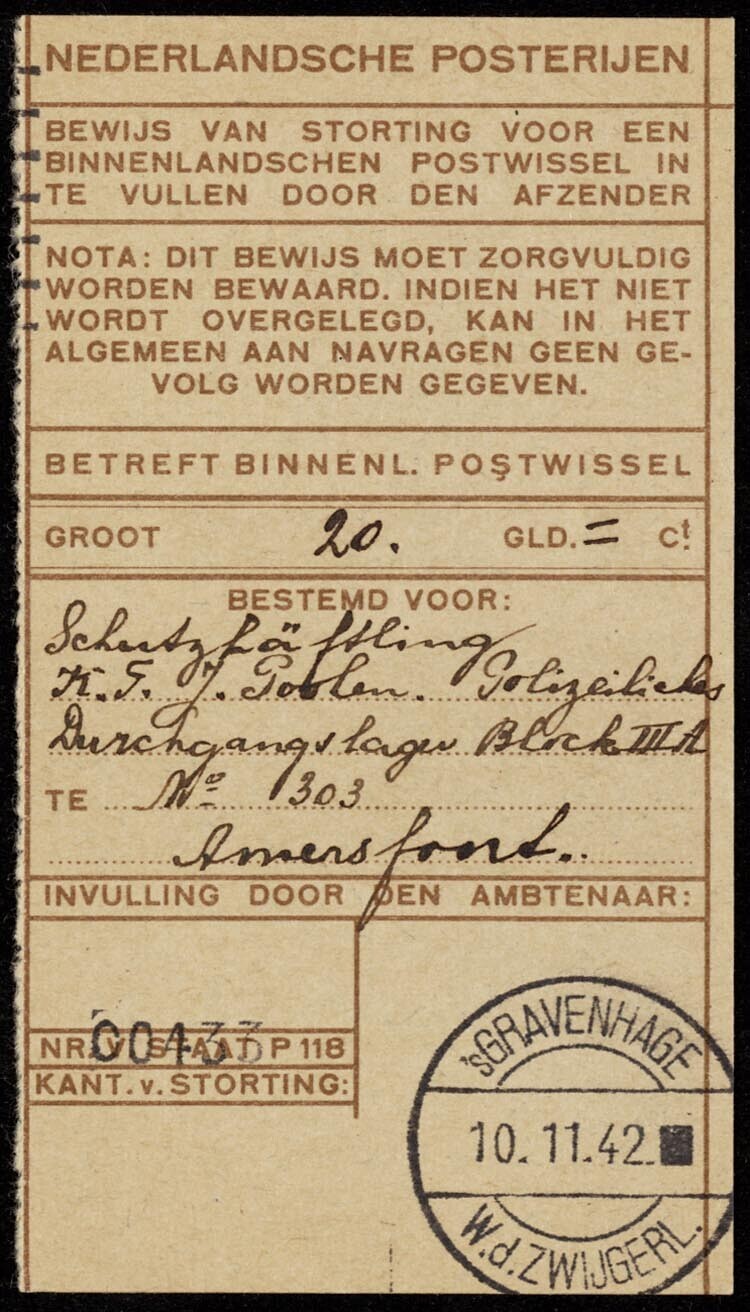 NEDERLANDSCHE POSTERIJEN
BEWIJS VAN STORTING VOOR EEN
BINNENLANDSCHEN POSTWISSEL IN
TE VULLEN DOOR DEN AFZENDER
NOTA: DIT BEWIJS MOET ZORGVULDIG
WORDEN BEWAARD. INDIEN HET NIET
WORDT OVERGELEGD, KAN IN HET
ALGEMEEN AAN NAVRAGEN GEEN GE-
VOLG WORDEN GEGEVEN.
BETREFT BINNENL. POSTWISSEL
GROOT 20. GLD. = Ct.
BESTEMD VOOR:
Schutzhäftling
J. Polizeiliches
Durchgangslager Block III A
TE No 303
Amersfoort.
INVULLING DOOR DEN AMBTENAAR:
00433
NR. V. STAAT P 118
KANT. v. STORTING:
'sGRAVENHAGE
10.11.42.
W.d.ZWIJGERL.